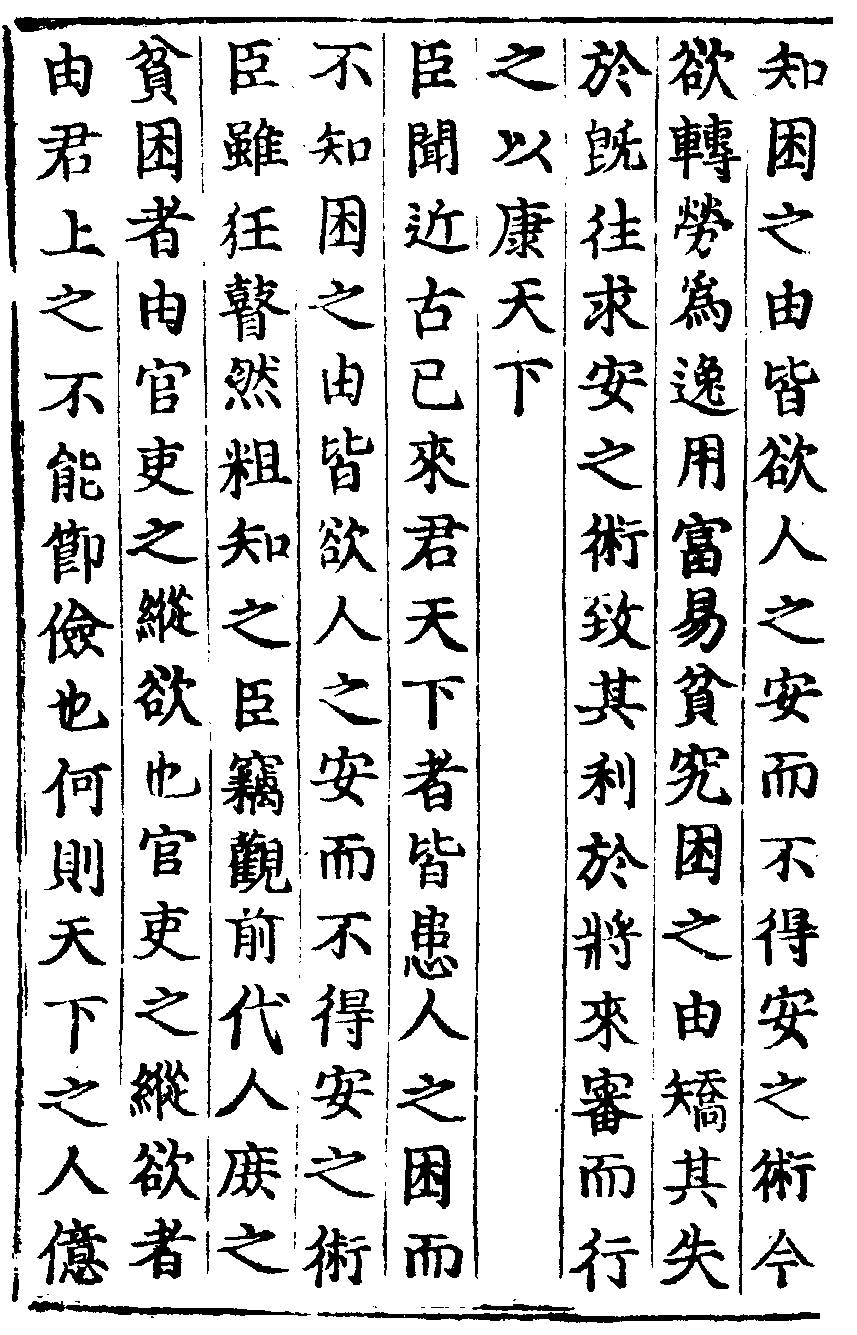 知困之由皆欲人之安而不得安之術今
欲轉勞為逸用富易貧究困之由矯其失
於旣往求安之術致其利於將來審而行
之以康天下
臣聞近古已來君天下者皆患人之困而
不知困之由皆欲人之安而不得安之術
臣雖狂瞽然粗知之臣竊觀前代人庻之
貧困者由官吏之縱欲也官吏之縱欲者
由君上之不能節儉也何則天下之人億